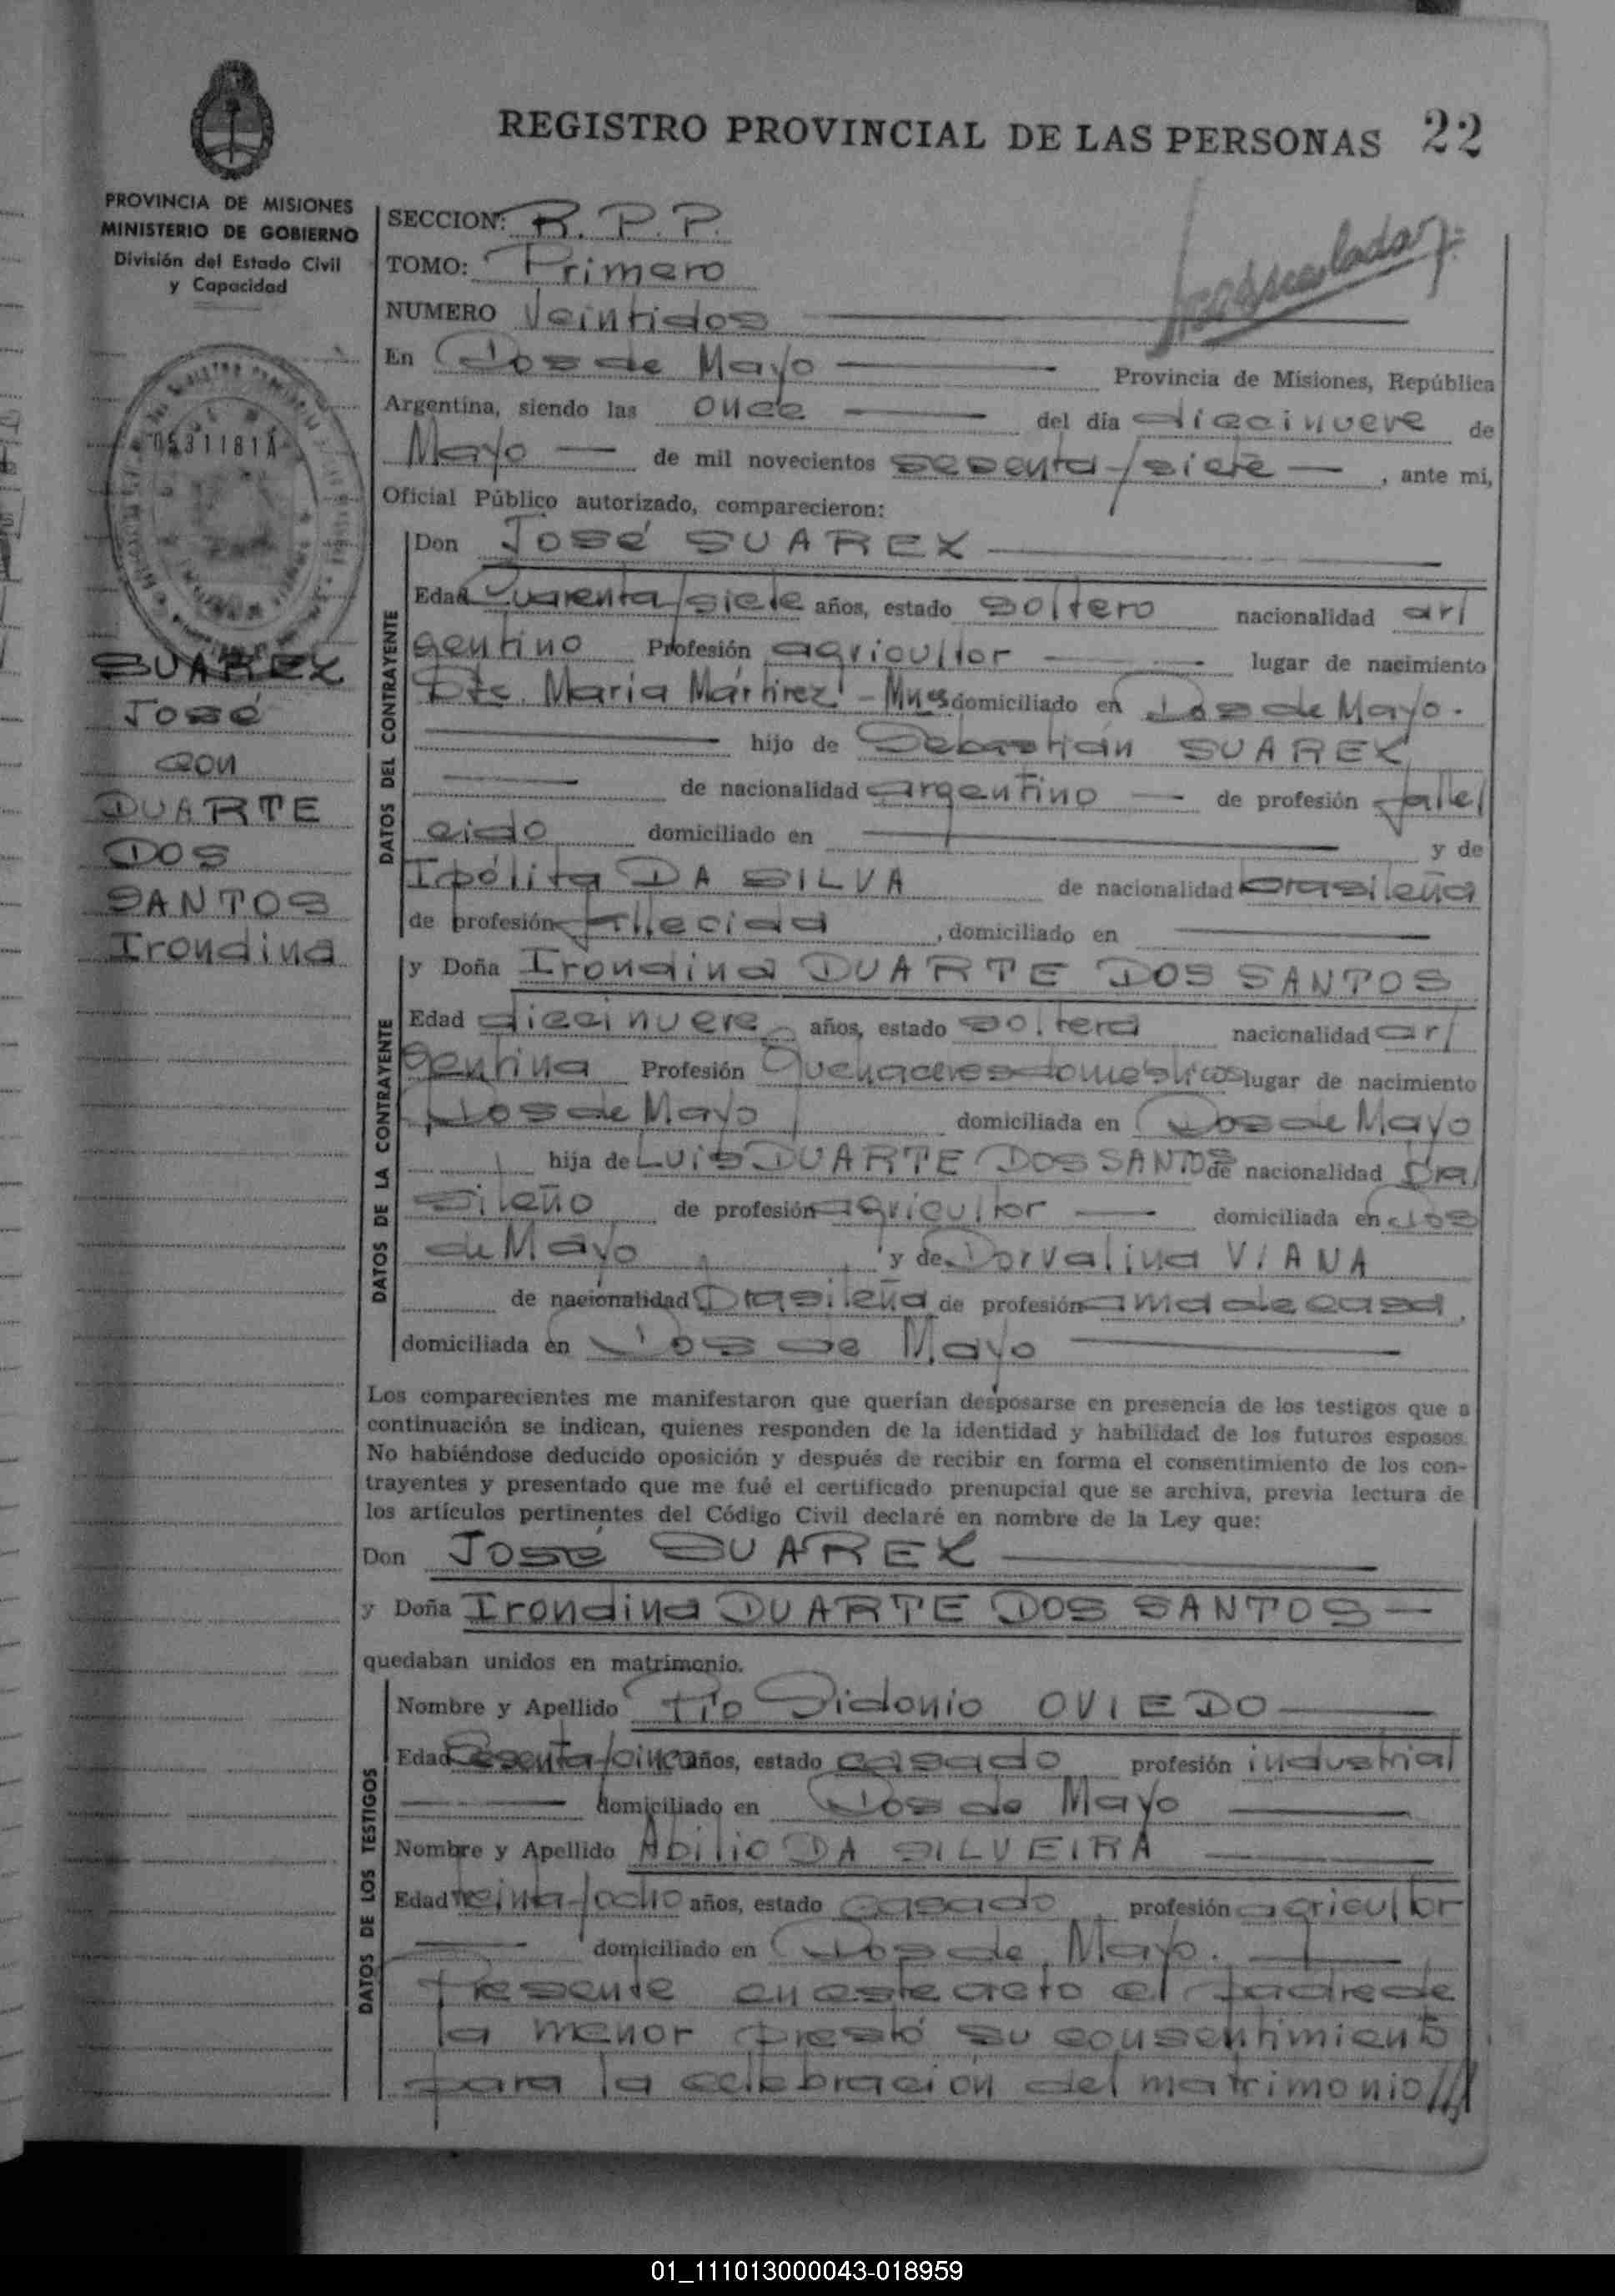 REGISTRO PROVINCIAL DE LAS PERSONAS 22
PROVINCIA DE MISIONES
MINISTERIO DE GOBIERNO
División del Estado Civil
y Capacidad
0531181A
SUAREX
José
con
DUARTE
DOS
SANTOS
Irondina
SECCION: R. P. P.
TOMO: Primero
NUMERO Veintidos
En Dos de Mayo Provincia de Misiones, República
Argentina, siendo las once del día diecinueve de
Mayo de mil novecientos sesenta/siete, ante mi,
Oficial Público autorizado, comparecieron:
DATOS DEL CONTRAYENTE
Don José SUAREX
Edad Cuarenta/siete años, estado soltero nacionalidad ar/
gentino Profesión agricultor lugar de nacimiento
Pte. Maria Mártirez - Mnes domiciliado en Dos de Mayo.
hijo de Sebastián SUAREX
de nacionalidad argentino de profesión falle/
cido domiciliado en y de
Ipólita DA SILVA de nacionalidad brasileña
de profesión fallecida, domiciliado en
DATOS DE LA CONTRAYENTE
y Doña Irondina DUARTE DOS SANTOS
Edad diecinueve años, estado soltera nacionalidad ar/
gentina Profesión Quehaceres domesticos lugar de nacimiento
Dos de Mayo domiciliada en Dos de Mayo
hija de Luis DUARTE DOS SANTOS de nacionalidad bra/
sileño de profesión agricultor domiciliada en Dos
de Mayo y de Dorvalina VIANA
de nacionalidad brasileña de profesión ama de casa,
domiciliada en Dos de Mayo
Los comparecientes me manifestaron que querían desposarse en presencia de los testigos que a
continuación se indican, quienes responden de la identidad y habilidad de los futuros esposos.
No habiéndose deducido oposición y después de recibir en forma el consentimiento de los con-
trayentes y presentado que me fué el certificado prenupcial que se archiva, previa lectura de
los artículos pertinentes del Código Civil declaré en nombre de la Ley que:
Don José SUAREX
y Doña Irondina DUARTE DOS SANTOS
quedaban unidos en matrimonio.
DATOS DE LOS TESTIGOS
Nombre y Apellido Pio Sidonio OVIEDO
Edad Sesenta/cinco años, estado casado profesión industrial
domiciliado en Dos de Mayo
Nombre y Apellido Abilio DA SILVEIRA
Edad treinta/ocho años, estado casado profesión agricultor
domiciliado en Dos de Mayo.
Presente en este acto el padre de
la menor prestó su consentimiento
para la celebración del matrimonio///
01_111013000043-018959